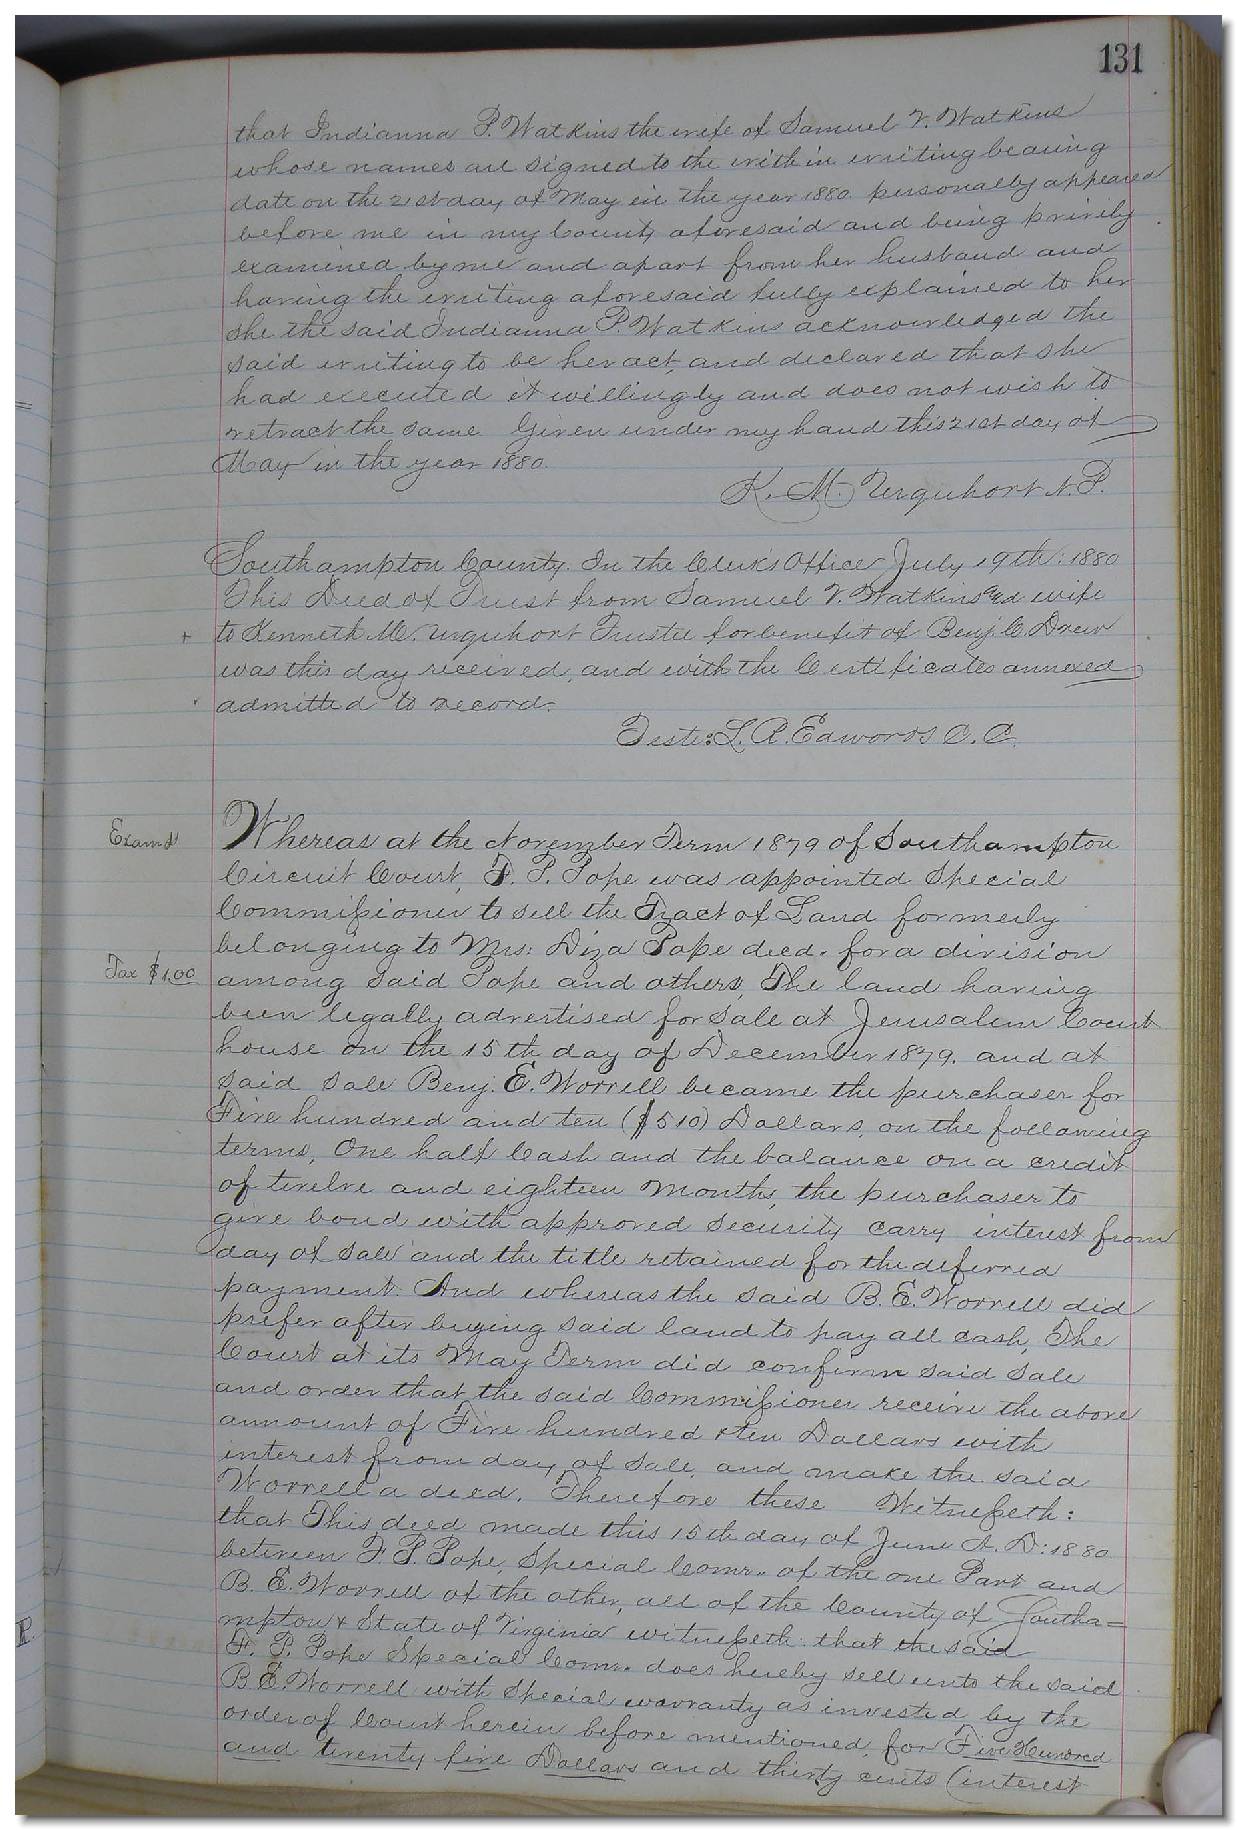 131
that Indianna P. Watkins the wife of Samuel V. Watkins
whose names are signed to the with in writing bearing
date on the 21st day of May in the year 1880 personally appeared
before me in my County aforesaid and being privily
examined by me and apart from her husband and
having the writing aforesaid fully explained to her
she the said Indianna P. Watkins acknowledged the
said writing to be her act, and declared that she
had executed it willingly and does not wish to
retract the same Given under my hand this 21st day of
May in the year 1880.
K. M. Urquhart N. P.
Southampton County. In the Clerk's Office July 19th: 1880
This Deed of Trust from Samuel V. Watkins and wife
to Kenneth M. Urquhart Trustee for benefit of Benj. C. Drew
was this day received, and with the Certificates annexed
admitted to record.
Teste: L. R. Edwards C. C.
Examd
Whereas at the November Term 1879 of Southampton
Circuit Court, F. P. Pope was appointed Special
Commissioner to sell the Tract of Land formerly
belonging to Mrs: Diza Pope deed. for a division
Tax $1.00
among said Pope and others, The land having
been legally advertised for sale at Jerusalem Court
house on the 15th day of December 1879. and at
said sale Benj. E. Worrell became the purchaser for
Five hundred and ten ($510) Dollars, on the following
terms, One half Cash and the balance on a credit
of twelve and eighteen months, the purchaser to
give bond with approved security carry interest from
day of sale and the title retained for the deferred
payment. And whereas the said B. E. Worrell did
prefer after buying said land to pay all cash, The
Court at its May Term did confirm said sale
and order that the said Commissioner receive the above
amount of Five hundred & ten Dollars with
interest from day of sale, and make the said
Worrell a deed. Therefore these Witnesseth:
that This deed made this 15th day of June A. D: 1880
between F. P. Pope, Special Comr. of the one Part and
B. E. Worrell of the other, all of the County of Southa=
mpton & State of Virginia witnesseth: that the said
F. P. Pope Special Comr. does hereby sell unto the said
B E. Worrell with Special warranty as invested by the
order of Court herein before mentioned, for Five Hundred
and twenty five Dollars and thirty cents (interest